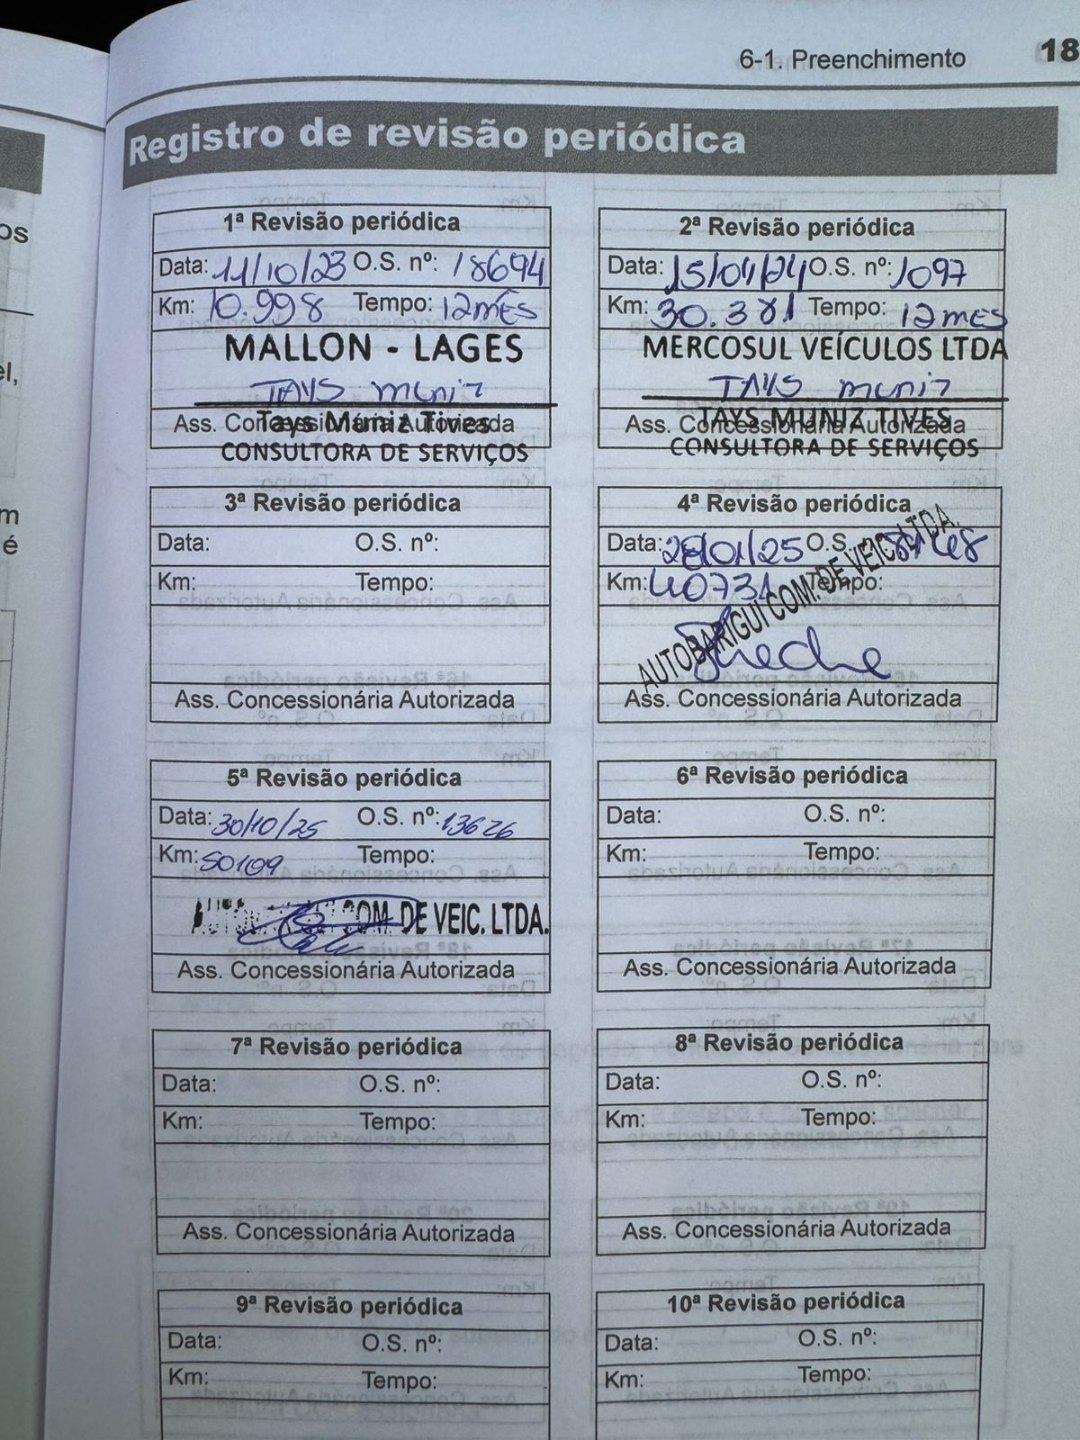 6-1. Preenchimento 18
Registro de revisão periódica
os
el,
m
é
1ª Revisão periódica
Data: 11/10/23 O.S. nº: 18694
Km: 10.998 Tempo: 12 mês
MALLON - LAGES
TAYS muniz
Ass. Concessionária Autorizada
Tays Muniz Tives
CONSULTORA DE SERVIÇOS
2ª Revisão periódica
Data: 15/01/24 O.S. nº: 1097
Km: 30.381 Tempo: 12 mês
MERCOSUL VEÍCULOS LTDA
TAYS muniz
Ass. Concessionária Autorizada
TAYS MUNIZ TIVES
CONSULTORA DE SERVIÇOS
3ª Revisão periódica
Data: O.S. nº:
Km: Tempo:
Ass. Concessionária Autorizada
4ª Revisão periódica
Data: 28/01/25 O.S.
Km: 40731 Tempo:
AUTOBARIGUI COM. DE VEIC. LTDA.
Ass. Concessionária Autorizada
5ª Revisão periódica
Data: 30/10/25 O.S. nº: 13626
Km: 50109 Tempo:
COM. DE VEIC. LTDA.
Ass. Concessionária Autorizada
6ª Revisão periódica
Data: O.S. nº:
Km: Tempo:
Ass. Concessionária Autorizada
7ª Revisão periódica
Data: O.S. nº:
Km: Tempo:
Ass. Concessionária Autorizada
8ª Revisão periódica
Data: O.S. nº:
Km: Tempo:
Ass. Concessionária Autorizada
9ª Revisão periódica
Data: O.S. nº:
Km: Tempo:
10ª Revisão periódica
Data: O.S. nº:
Km: Tempo: